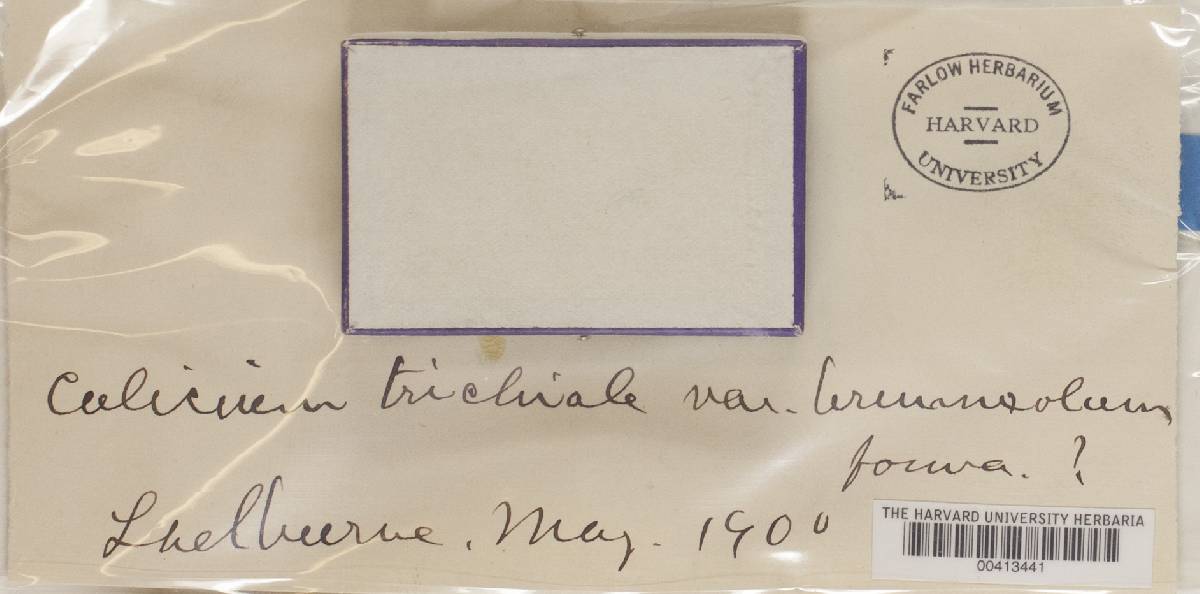 FARLOW HERBARIUM
HARVARD
UNIVERSITY
Calicium trichiale var. brunneolum
forma. ?
Shelburne. May. 1900
THE HARVARD UNIVERSITY HERBARIA
00413441